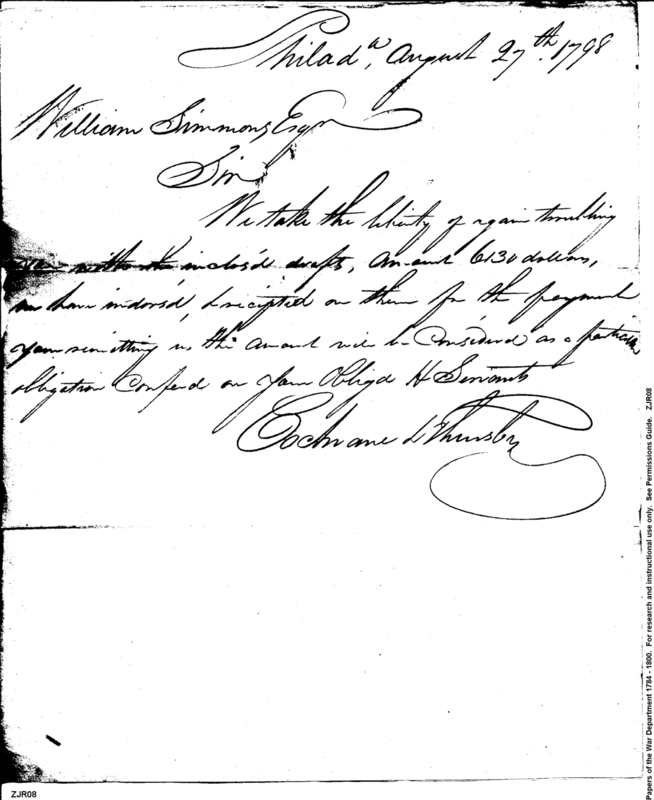 Philad.a, August 27th. 1798
William Simmons Esqr
Sir
We take the liberty of again troubling
you with the inclos'd drafts, amount 6130 dollars,
we have indors'd, & recipted on them for the payment
your remitting us the amount will be Considered as a particular
obligation Confered on Your Obligd H Servants
Cochrane & Thursby
ZJR08
Papers of the War Department 1784 - 1800. For research and instructional use only. See Permissions Guide. ZJR08